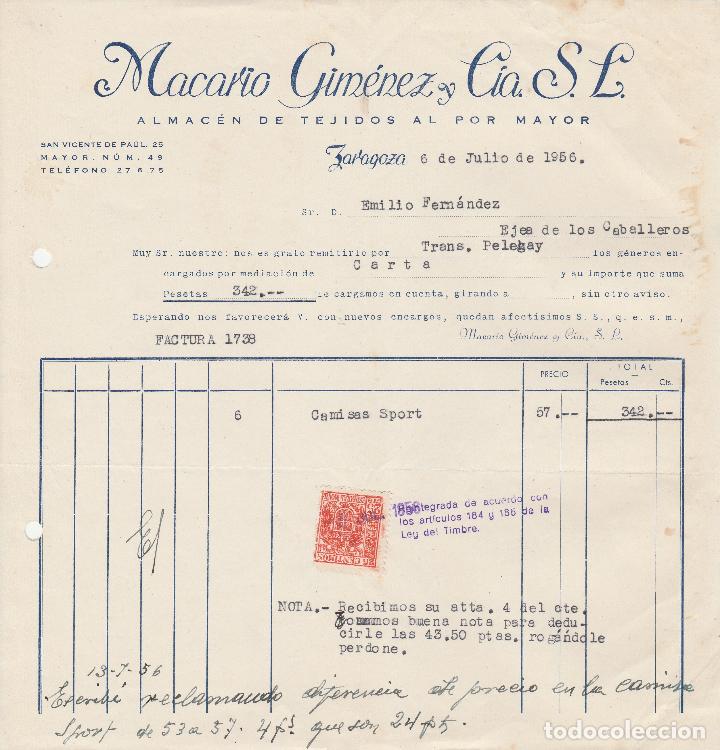 Macario Giménez y Cía. S. L.
ALMACÉN DE TEJIDOS AL POR MAYOR
SAN VICENTE DE PAÚL, 25
MAYOR, NÚM. 49
TELÉFONO 27675
Zaragoza 6 de Julio de 1956.
Sr. D. Emilio Fernández
Ejea de los Caballeros
Muy Sr. nuestro: nos es grato remitirle por Trans. Pelegay los géneros en-
cargados por mediación de Carta y su importe que suma
Pesetas 342.-- le cargamos en cuenta, girando a , sin otro aviso.
Esperando nos favorecerá V. con nuevos encargos, quedan afectísimos S. S., q. e. s. m.,
FACTURA 1738 Macario Giménez y Cía., S. L.
PRECIO TOTAL
Pesetas Cts.
6 Camisas Sport 57.-- 342.--
Reintegrada de acuerdo con
los artículos 184 y 185 de la
Ley del Timbre.
E/
NOTA.- Recibimos su atta. 4 del cte.
Tomamos buena nota para dedu-
cirle las 43.50 ptas. rogándole
perdone.
13-7-56
Escribí reclamando diferencia de precio en la camisa
Sport de 53 a 57. 4 pts que son 24 pts.
todocoleccion